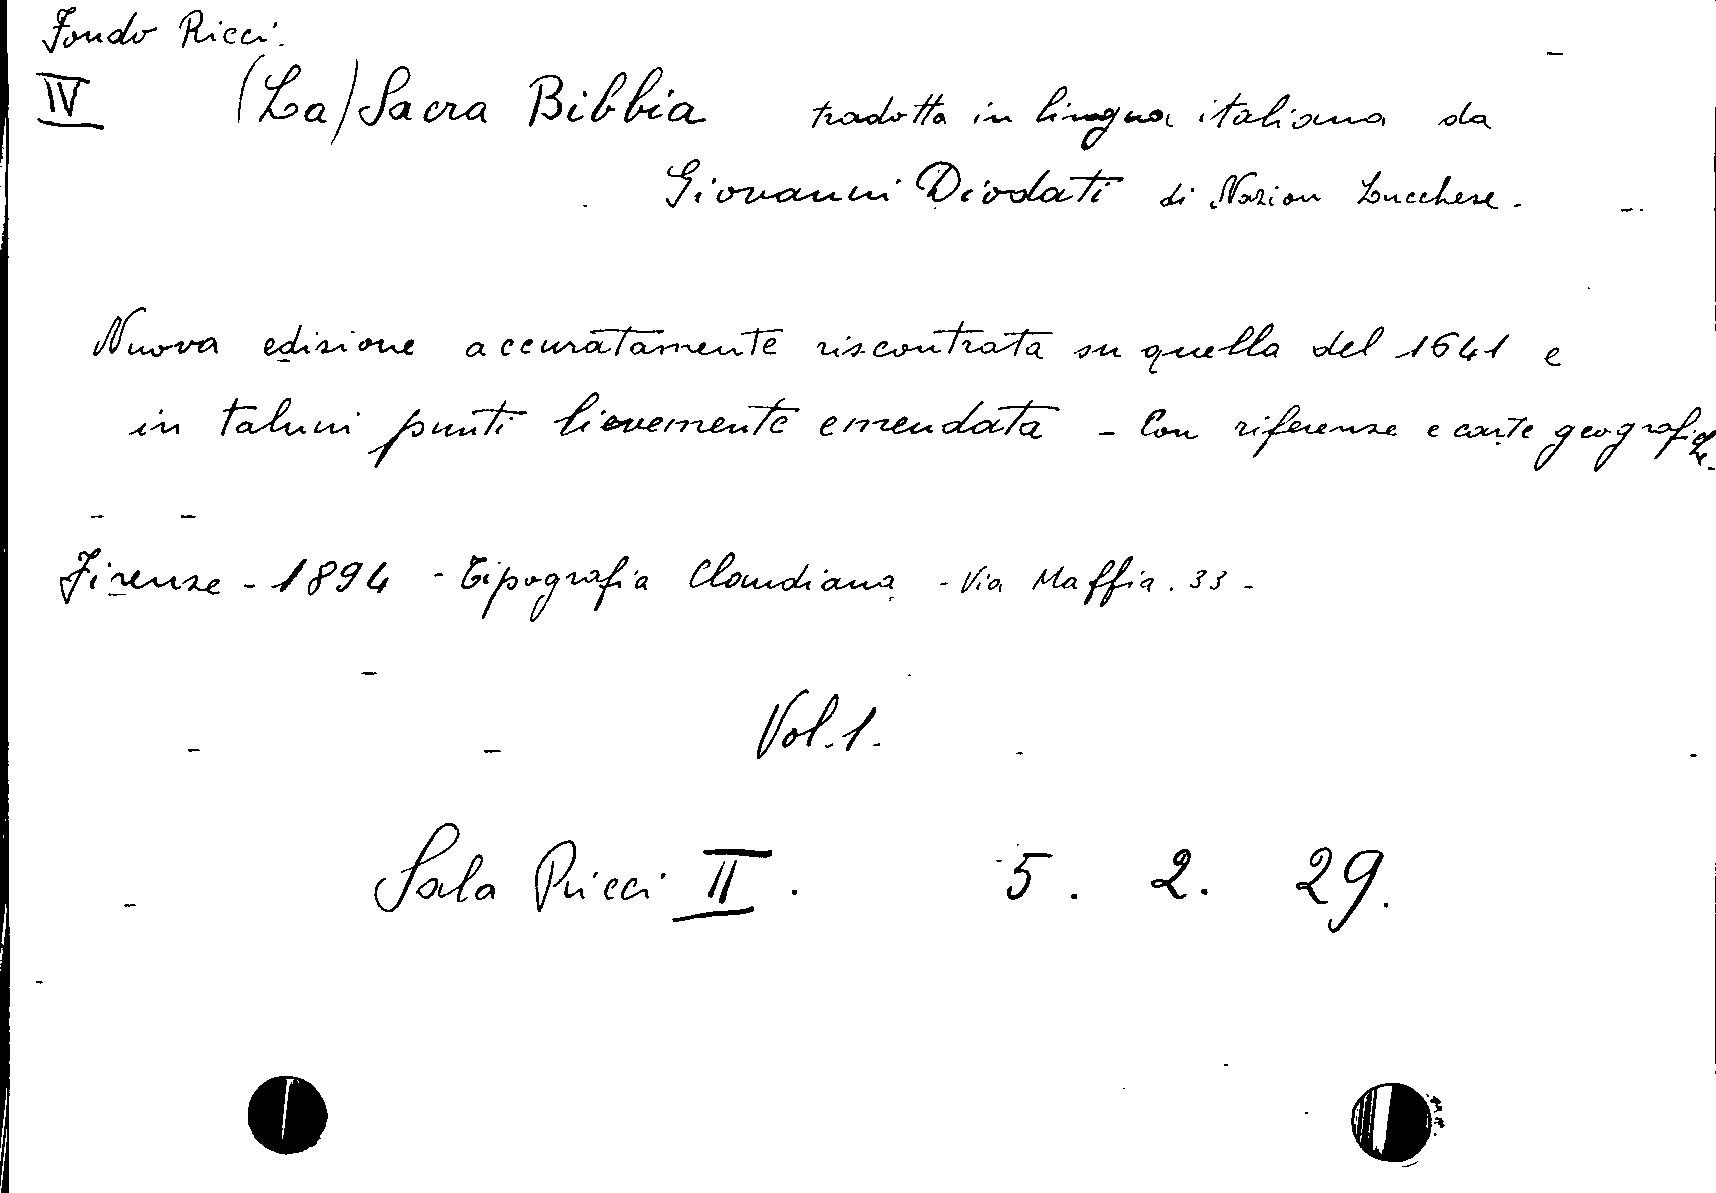 Fondo Ricci.
IV (La) Sacra Bibbia tradotta in lingua italiana da
Giovanni Diodati di Nazion Lucchese.
Nuova edizione accuratamente riscontrata su quella del 1641 e
in taluni punti lievemente emendata - Con riferenze e carte geografiche.
Firenze - 1894 - Tipografia Claudiana - Via Maffia. 33 -
Vol. 1.
Sala Ricci II. 5. 2. 29.